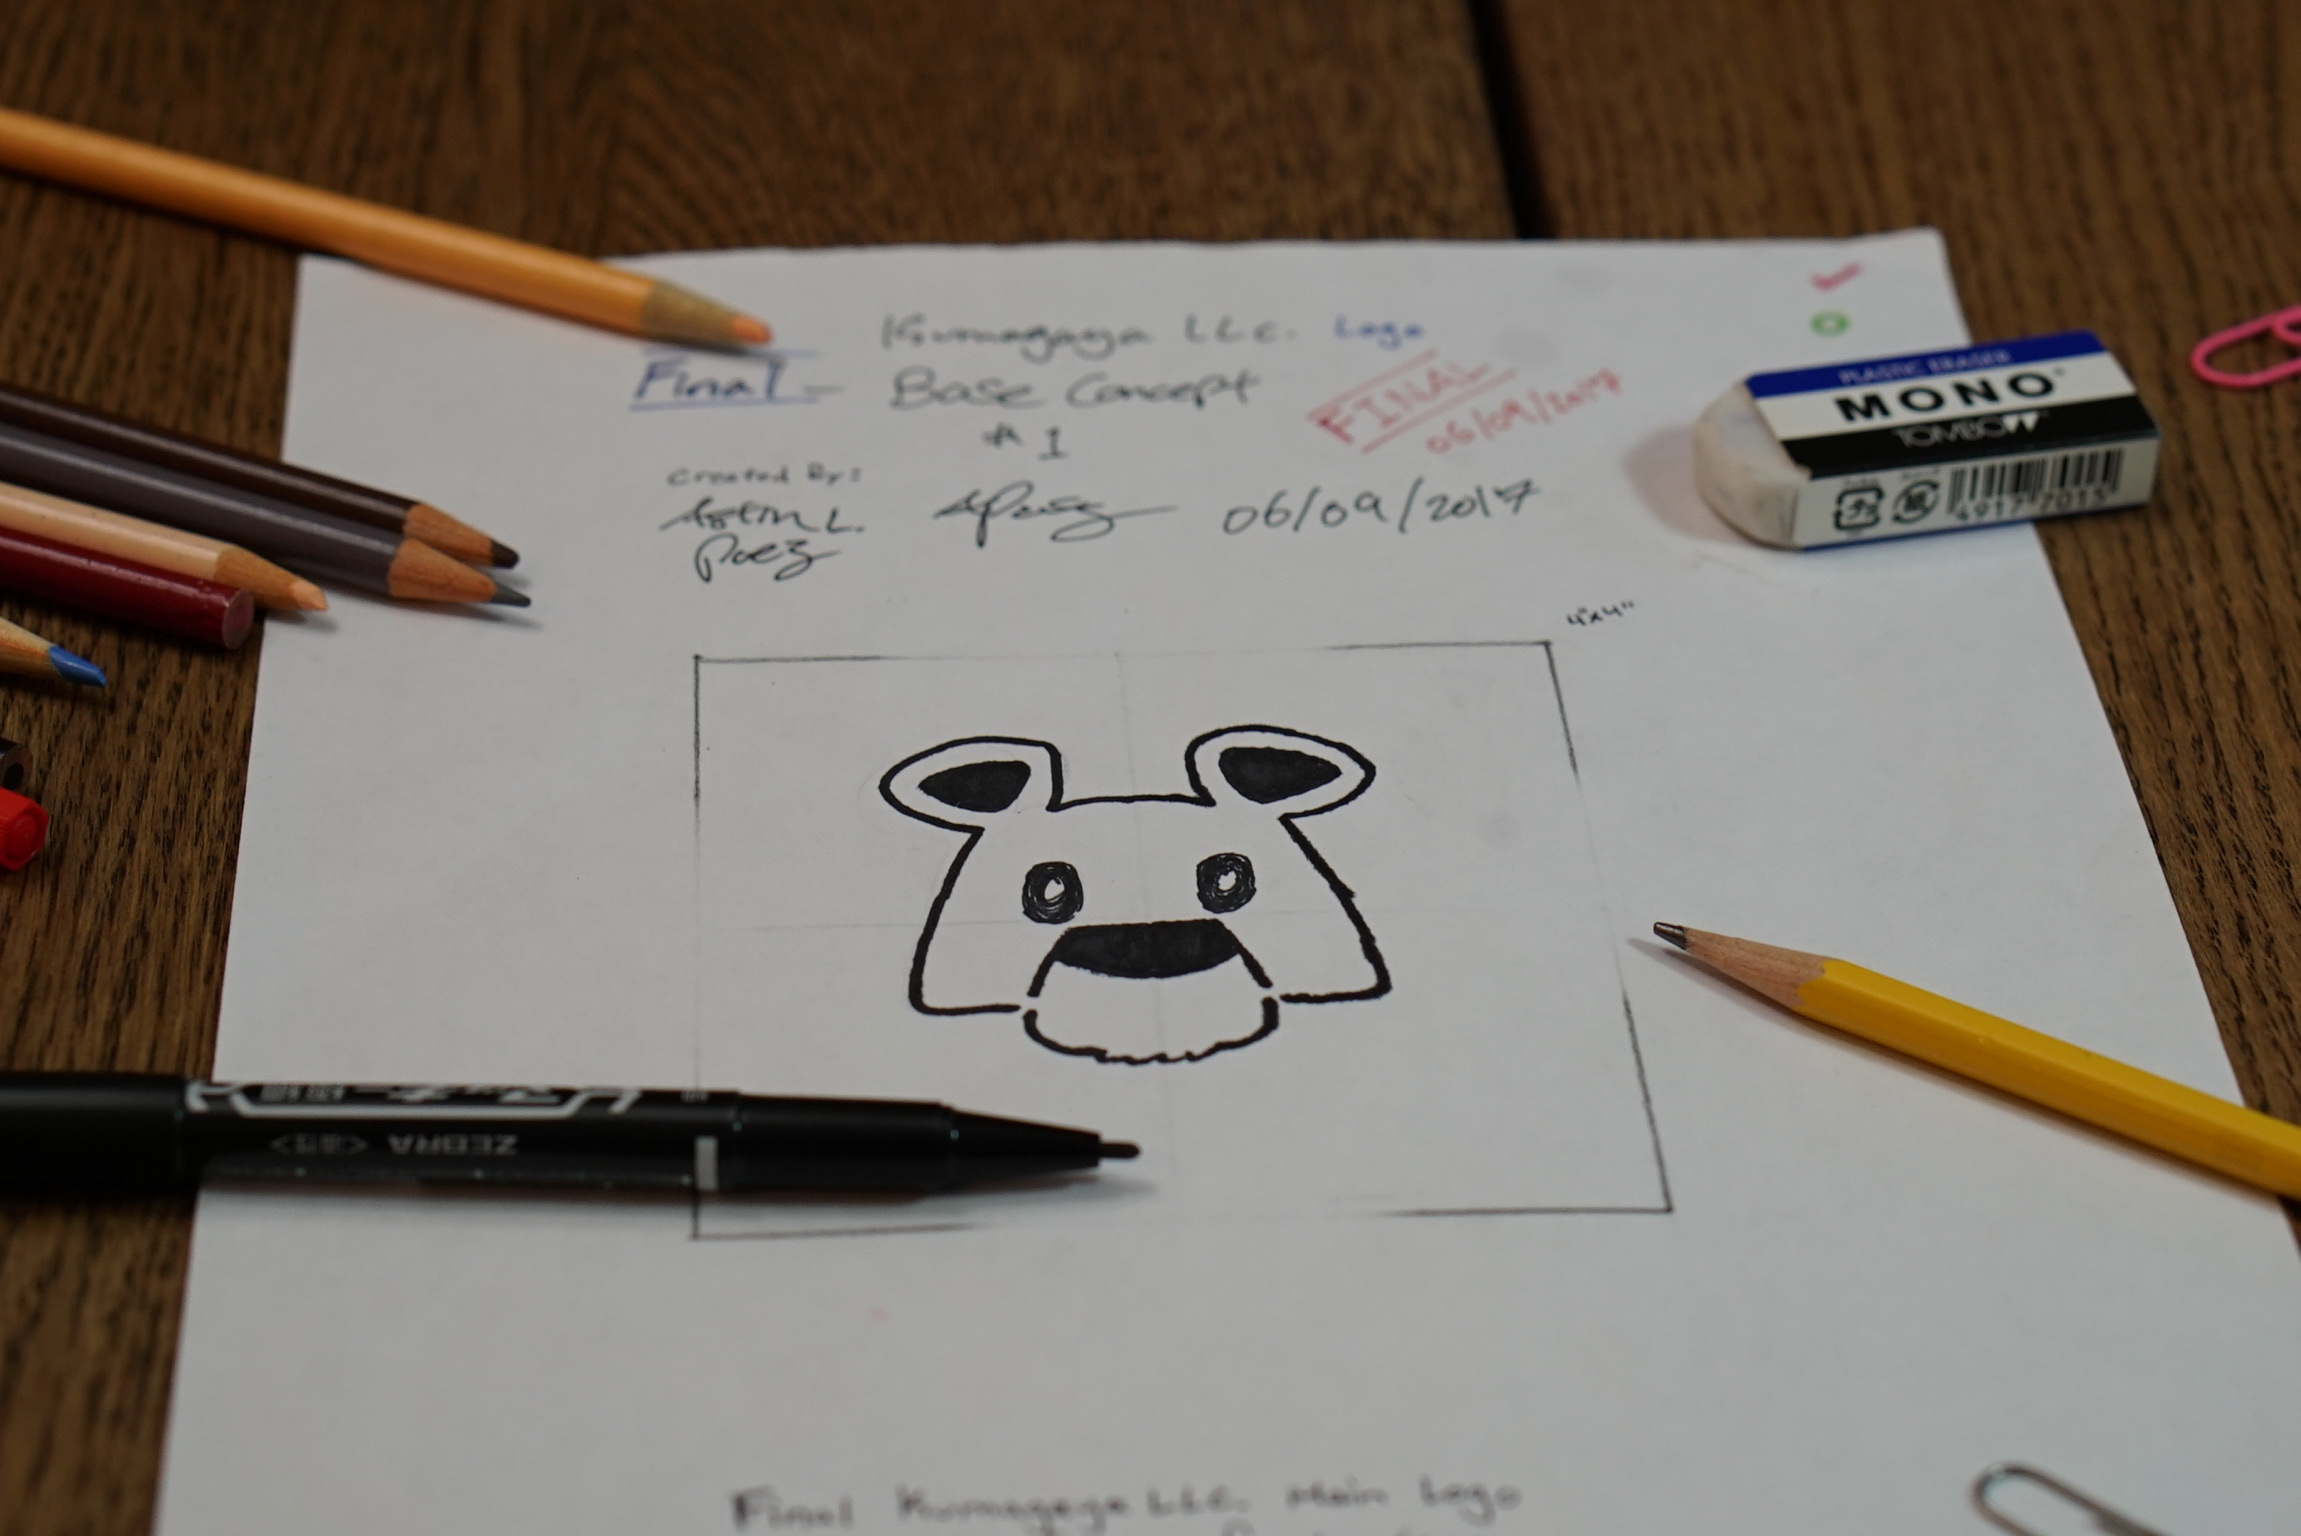 Kumagaya LLC. Logo
Final - Base Concept
# 1
FINAL
06/09/2017
Created By:
Paez
06/09/2017
4"x4"
PLASTIC ERASER
MONO
TOMBOW
ZEBRA
Final Kumagaya LLC. Main Logo